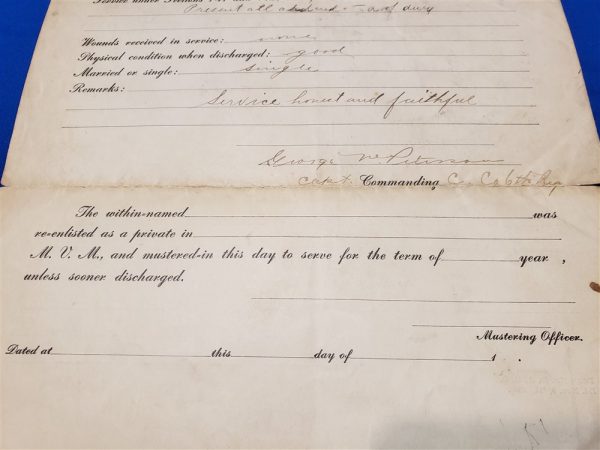 Present all
Wounds received in service: none
Physical condition when discharged: good
Married or single: single
Remarks:
Service honest and faithful
George W. Peterson
Capt. Commanding Co. 6th Reg
The within-named was
re-enlisted as a private in
M. V. M., and mustered-in this day to serve for the term of year ,
unless sooner discharged.
Mustering Officer.
Dated at this day of 1 .